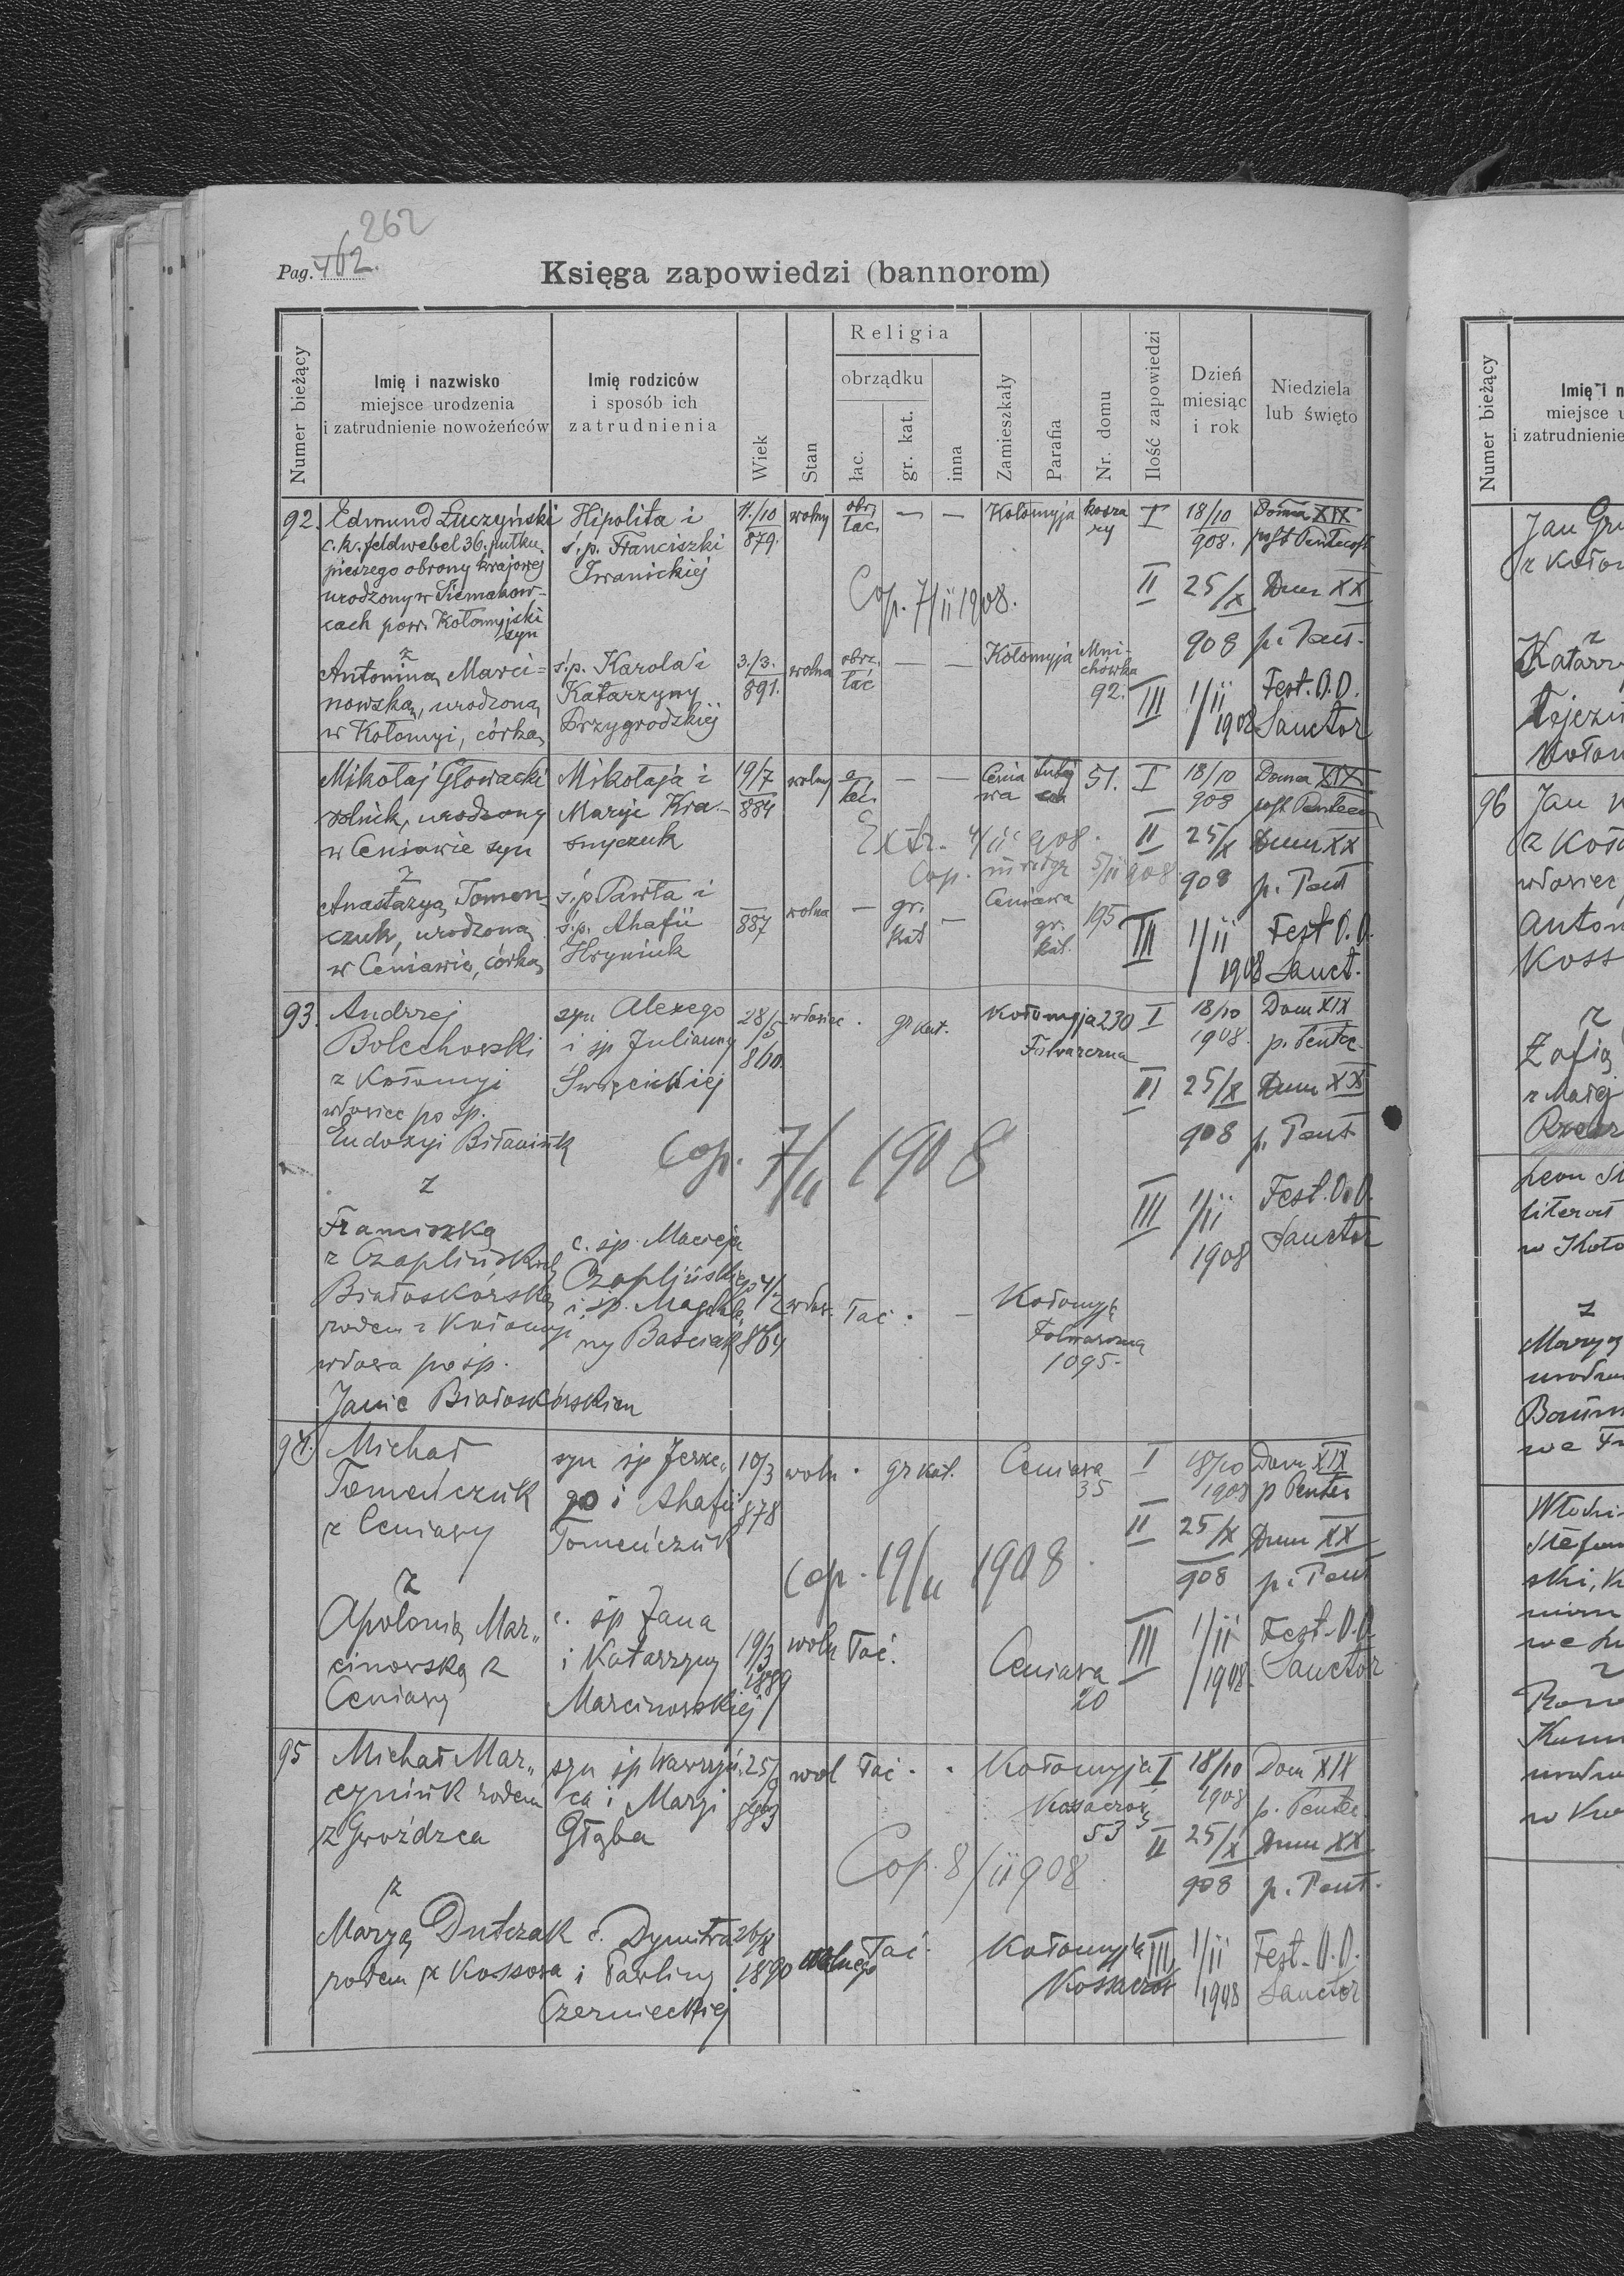 262
Pag. 462.
Księga zapowiedzi (bannorom)
Numer bieżący
Imię i nazwisko
miejsce urodzenia
i zatrudnienie nowożeńców
Imię rodziców
i sposób ich
zatrudnienia
Wiek
Stan
Religia
obrządku
łac.
gr. kat.
inna
Zamieszkały
Parafia
Nr. domu
Ilość zapowiedzi
Dzień
miesiąc
i rok
Niedziela
lub święto
92. Edmund Łuczyński
c. k. feldwebel 36. pułku
pieszego obrony krajowej
urodzony w Siemakow-
cach pow. Kołomyjski
syn
Hipolita i
ś. p. Franciszki
Iwanickiej
879.
wolny
obrz.
łac.
— —
Kołomyja
kosza
ry
I 18/10
908.
Domin XIX
post Pentecost
II 25/X
908
Dum XX
p. Pent.
Cop. 7/ii 1908.
z
Antonina Marci-
nowska, urodzona
w Kołomyi, córka
ś. p. Karola i
Katarzyny
Przygrodzkiej
3./3.
891.
wolna
obrz.
łać
— —
Kołomyja
Mni-
chówka
92.
III 1/ii
1908
Fest. O. O.
Sanctor
Mikołaj Głowacki
rolnik, urodzony
w Ceniawie syn
Mikołaja i
Maryi Kra-
snyczuk
19/7
884
wolny
łać.
— —
Cenia
wa
51.
I 18/10
908
Domin XIX
post Pentecos
II 25/X
908
Dum XX
p. Pent
Extr. 4/ii 908.
Cop. 5/ii 908
z
Anastazya Tomen-
czuk, urodzona
w Ceniawie, córka
ś. p Pawła i
ś. p. Ahafii
Hryniuk
887
wolna
—
gr.
kat
—
Ceniawa
gr.
kat.
195
III 1/ii
1908
Fest O. O.
Sanct.
93. Andrzej
Bolechowski
z Kołomyi
wdowiec po śp.
Eudoxyi Biłaniuk
syn Alexego
i śp Julianny
Święcickiej
28/5
860
wdowiec
gr kat.
Kołomyja 230
Folwarczna
I 18/10
1908.
Dom XIX
p. Pentec
II 25/X
908
Dum XX
p. Pent
Cop. 7/11 1908
III 1/ii
1908
Fest. O. O.
Sanctor
z
Franciszką
z Czaplińskich
Białoskórską
rodem z Kołomyi
wdowa po śp.
Janie Białoskórskim
c. śp. Macieja
Czaplińskiego
i śp. Magdale
ny Basciak
864
wdow.
łać
. —
Kołomyja
Folwarczna
1095.
94. Michał
Tomeńczuk
z Ceniawy
syn śp Jerze„
go i Ahafii
Tomeńczuk
10/3
878
woln
gr kat.
Ceniawa
35
I 18/10
1908
Dom XIX
p Pentec
II 25/X
908
Dum XX
p. Pent
Cop. 19/11 1908
z
Apolonią Mar„
cinowską z
Ceniawy
c. śp Jana
i Katarzyny
Marcinowskiej
19/3
1889
woln
łać.
Ceniawa
20
III 1/ii
1908.
Fest. O. O.
Sanctor
95 Michał Mar„
cyniuk rodem
z Gwoźdzca
syn śp Wawrzyń„
ca i Maryi
Głąba
wol
łać . .
Kołomyja
53
I 18/10
1908
Dom XIX
p. Pentec.
II 25/X
908
Dum XX
p. Pent.
Cop. 8/ii 908
z
Maryą Dutczak
rodem z Kossowa
c. Dymitra
i Pawliny
Czernieckiej
1890
łać.
Kołomyja
III 1/ii
1908
Fest. O. O.
Sanctor
Numer bieżący
Imię i n
miejsce u
i zatrudnienie
Jan
z Koło
z
Katarz
96 Jan
z Koło
wdowiec
Anton
Koss
z
Zofią
Leon
literat
w Koło
z
Maryą
Włodzi
Stefan
z
w